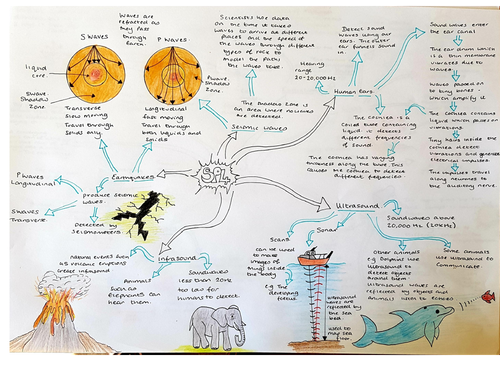 Waves are
refracted as they
pass through
Earth.
S WAVES
P WAVES
liquid
core
Swave
Shadow
Zone
Pwave
Shadow
Zone
Transverse
Slow moving
Travel through
Solids only
Longitudinal
fast moving
Travel through
both liquids and
Solids
Scientists use data
on the time it takes
waves to arrive at different
places and the speed of
the waves through different
types of rock to
model the paths
the waves take.
The shadow zone is
an area where no waves
are detected.
Seismic waves
Detect sound
waves using our
ears. The outer
ear funnels sound
in
Hearing
range
20-20,000 Hz
Human Ears
Sound waves enter
the ear canal
The ear drum which is
a thin membrane
vibrates due to
waves
Waves passed on
to tiny bones
which amplify it
The Cochlea contains
liquid which passes on
vibrations.
Tiny hairs inside the
cochlea detect
vibrations and generate
electrical impulses
The impulses travel
along neurones to
the auditory nerve
The cochlea is a
coiled tube containing
liquid it detects
different frequencies
of sound.
The cochlea has varying
thickness along the base this
allows the cochlea to detect
different frequencies
SP4
Earthquakes
P Waves
Longitudinal
S Waves
Transverse
produce Seismic
waves.
Detected by
Seismometers
Infrasound
Natural events such
as volcanic eruptions
create infrasound
Animals
such as
Elephants can
hear them.
Soundwaves
less than 20Hz
too low for
humans to detect
Ultrasound
Soundwaves above
20,000 Hz (20kHz)
Scans
Sonar
can be used
to make
images of
things inside
the body
e.g The
developing
foetus
ultrasound
waves are
reflected by
the sea
bed.
used to
map sea
floor.
Other animals
e.g Dolphins use
Ultrasound to
detect objects
around them.
Ultrasound waves are
reflected by objects and
animals listen to echoes
Some animals
use ultrasound to
Communicate